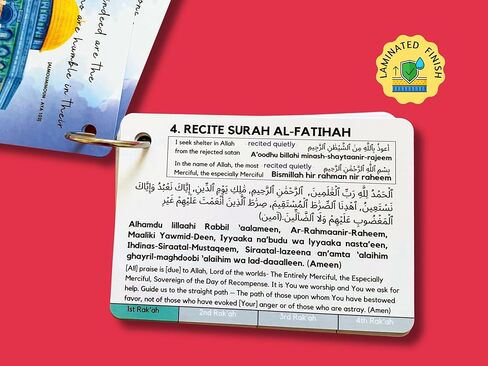 indeed are the
who are humble in their
LAMINATED FINISH
4. RECITE SURAH AL-FATIHAH
I seek shelter in Allah
from the rejected satan
recited quietly
أعوذُ بِٱللَّهِ مِنَ ٱلشَّيْطَٰنِ ٱلرَّجِيمِ
A'oodhu billahi minash-shaytaanir-rajeem
In the name of Allah, the most
Merciful, the especially Merciful
recited quietly
بِسْمِ ٱللَّهِ ٱلرَّحْمَٰنِ ٱلرَّحِيمِ
Bismillah hir rahman nir raheem
الْحَمْدُ لِلَّهِ رَبِّ الْعَٰلَمِينَ، الرَّحْمَٰنِ الرَّحِيمِ، مَٰلِكِ يَوْمِ الدِّينِ، إِيَّاكَ نَعْبُدُ وَإِيَّاكَ
نَسْتَعِينُ، اهْدِنَا الصِّرَٰطَ الْمُسْتَقِيمَ، صِرَٰطَ الَّذِينَ أَنْعَمْتَ عَلَيْهِمْ غَيْرِ
الْمَغْضُوبِ عَلَيْهِمْ وَلَا الضَّالِّينَ. (آمين)
Alhamdu lillaahi Rabbil 'aalameen, Ar-Rahmaanir-Raheem,
Maaliki Yawmid-Deen, Iyyaaka na'budu wa Iyyaaka nasta'een,
Ihdinas-Siraatal-Mustaqeem, Siraatal-lazeena an'amta 'alaihim
ghayril-maghdoobi 'alaihim wa lad-daaalleen. (Ameen)
[All] praise is [due] to Allah, Lord of the worlds- The Entirely Merciful, the Especially
Merciful, Sovereign of the Day of Recompense. It is You we worship and You we ask for
help. Guide us to the straight path – The path of those upon whom You have bestowed
favor, not of those who have evoked [Your] anger or of those who are astray. (Amen)
1st Rak'ah
2nd Rak'ah
3rd Rak'ah
4th Rak'ah